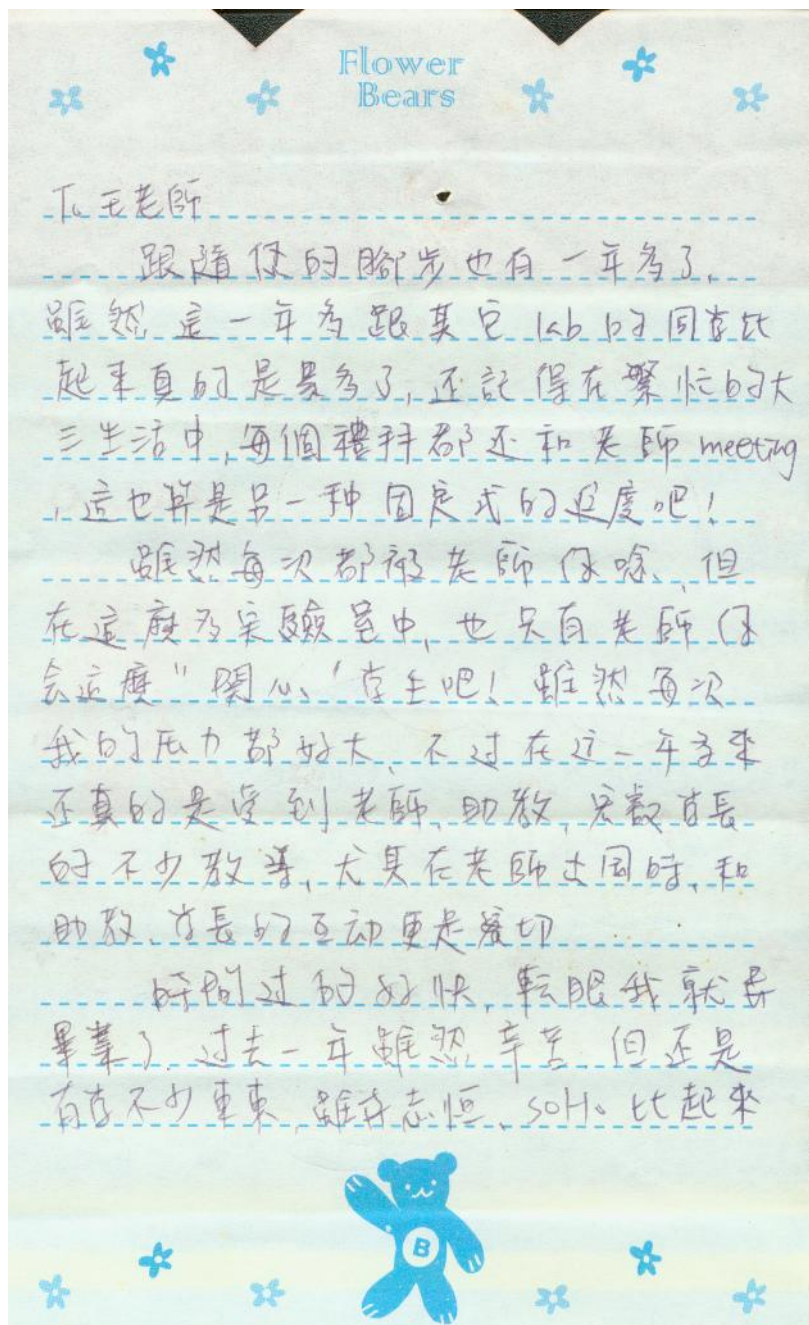 Flower
Bears
To 王老師
跟隨您的腳步也有一年多了,
雖然這一年多跟其它 lab 的同学比
起來真的是累多了,还記得在繁忙的大
三生活中,每個禮拜都还和老師 meeting
,這也算是另一种固定式的進度吧!
雖然每次都被老師你唸、但
在這麼多实驗室中,也只有老師你
会這麼"関心"学生吧!雖然每次
我的压力都好大、不过在这一年多來
还真的是受到老師、助教、宏毅学長
的不少教導,尤其在老師出國時,和
助教、学長的互动更是密切
時間过的好快,転眼我就要
畢業了,过去一年雖然辛苦、但还是
有学不少東東,雖与志恒、SOHo 比起來
B